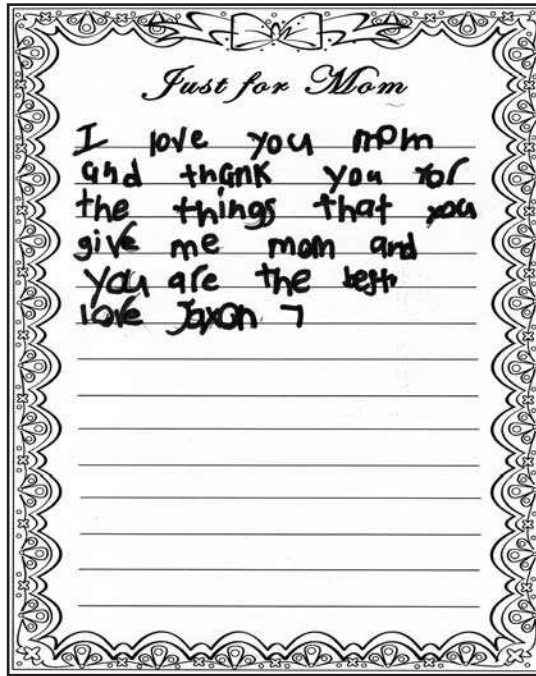 Just for Mom
I love you mom
and thank you for
the things that you
give me mom and
you are the best
love Jaxon 7